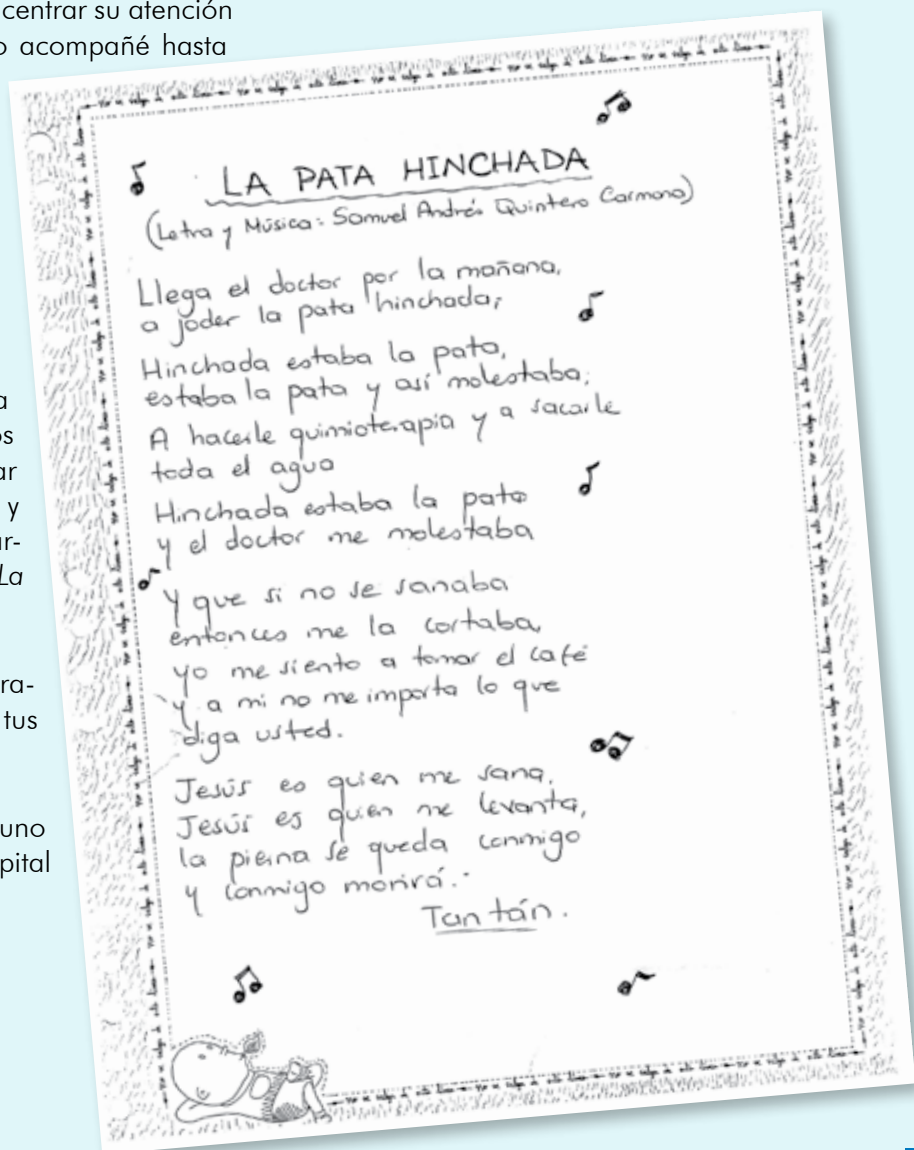 centrar su atención
o acompañé hasta
a
os
ar
y
ar-
La
ra-
tus
uno
pital
LA PATA HINCHADA
(Letra y Música: Samuel Andrés Quintero Carmona)
Llega el doctor por la mañana,
a joder la pata hinchada;
Hinchada estaba la pata,
estaba la pata y así molestaba;
A hacerle quimioterapia y a sacarle
toda el agua
Hinchada estaba la pata
y el doctor me molestaba
Y que si no se sanaba
entonces me la cortaba,
yo me siento a tomar el café
y a mi no me importa lo que
diga usted.
Jesús es quien me sana,
Jesús es quien me levanta,
la pierna se queda conmigo
y conmigo morirá.
Tan tán.